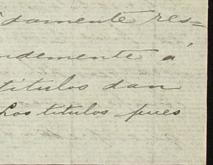 damente res-
ndemente á
titulos dan
Los titulos pues